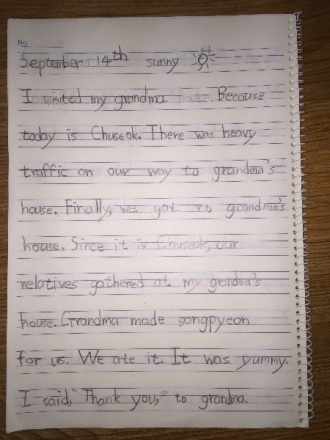 No.
September 14th sunny
I visited my grandma. Because
today is Chuseok. There was heavy
traffic on our way to grandma's
house. Finally, we got to grandma's
house. Since it is Chuseok, our
relatives gathered at my grandma's
house. Grandma made songpyeon
for us. We ate it. It was yummy.
I said, "Thank you," to grandma.